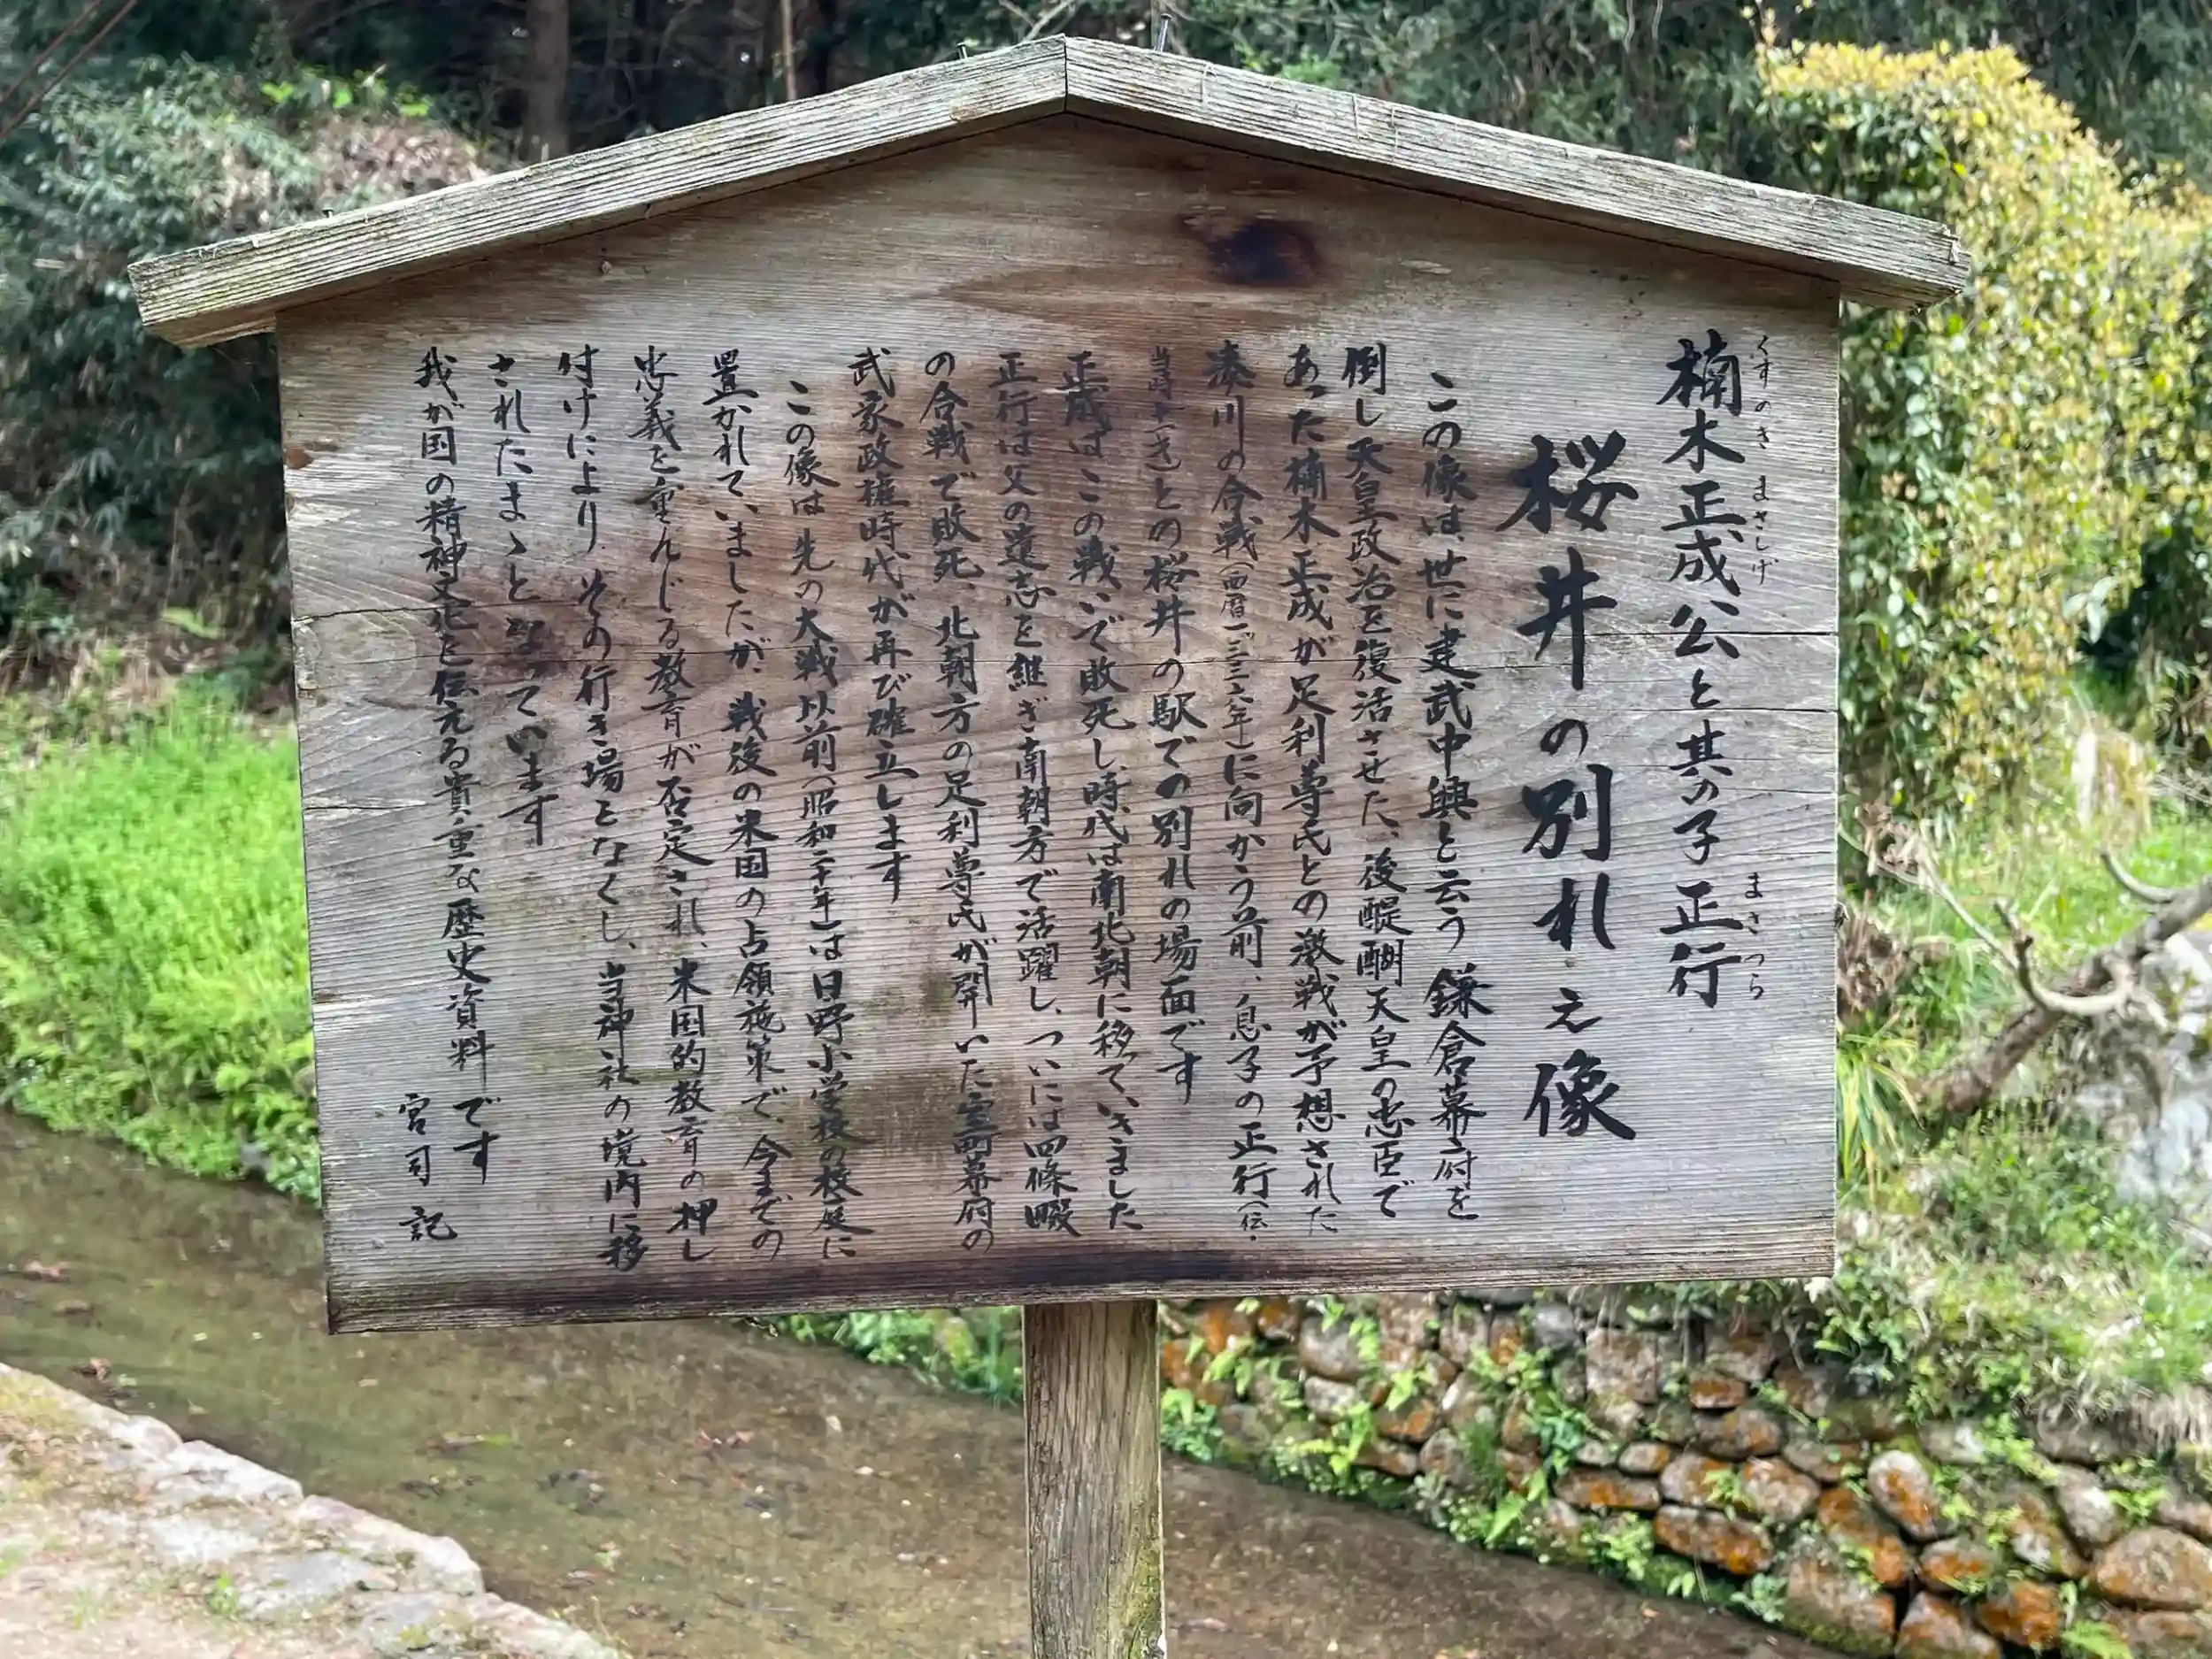 楠木正成公と其の子 正行
くすのき まさしげ まさつら
桜井の別れ之像
この像は、世に建武中興と云う 鎌倉幕府を
倒し天皇政治を復活させた、後醍醐天皇の忠臣で
あった楠木正成が足利尊氏との激戦が予想された
湊川の合戦(西暦一三三六年)に向かう前、息子の正行(伝・
当時十一才)との桜井の駅での別れの場面です
正成はこの戦いで敗死し時代は南北朝に移っていきました
正行は父の遺志を継ぎ南朝方で活躍し、ついには四條畷
の合戦で敗死、北朝方の足利尊氏が開いた室町幕府の
武家政権時代が再び確立します
この像は先の大戦以前(昭和二十年)は日野小学校の校庭に
置かれていましたが、戦後の米国の占領施策で、今までの
忠義を重んじる教育が否定され、米国的教育の押し
付けにより その行き場となくし、当神社の境内に移
されたまゝとなっています
我が国の精神文化を伝える貴重な歴史資料です
宮司 記